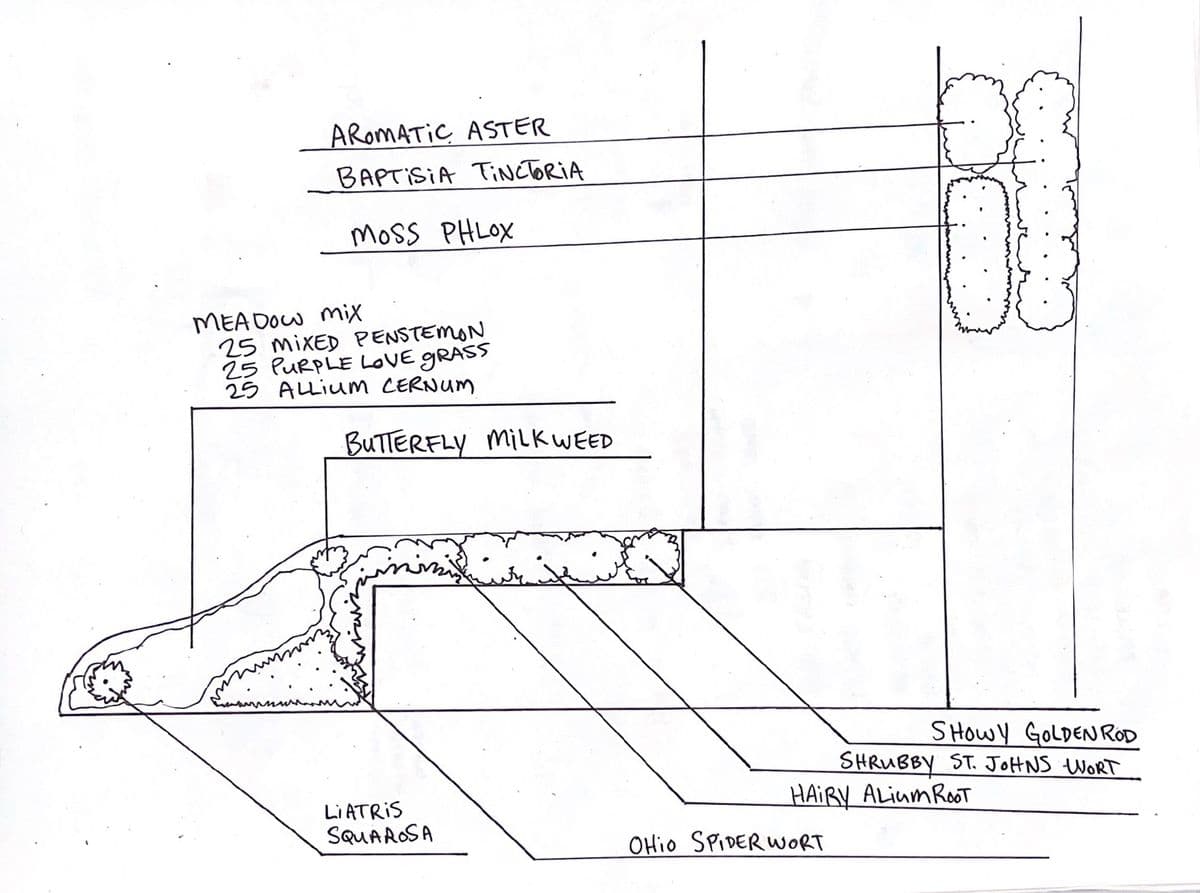 AROMATIC ASTER
BAPTISIA TINCTORIA
MOSS PHLOX
MEADOW MIX
25 MIXED PENSTEMON
25 PURPLE LOVE GRASS
25 ALLIUM CERNUM
BUTTERFLY MILKWEED
SHOWY GOLDENROD
SHRUBBY ST. JOHNS WORT
HAIRY ALIUMROOT
LIATRIS
SQUAROSA
OHIO SPIDERWORT